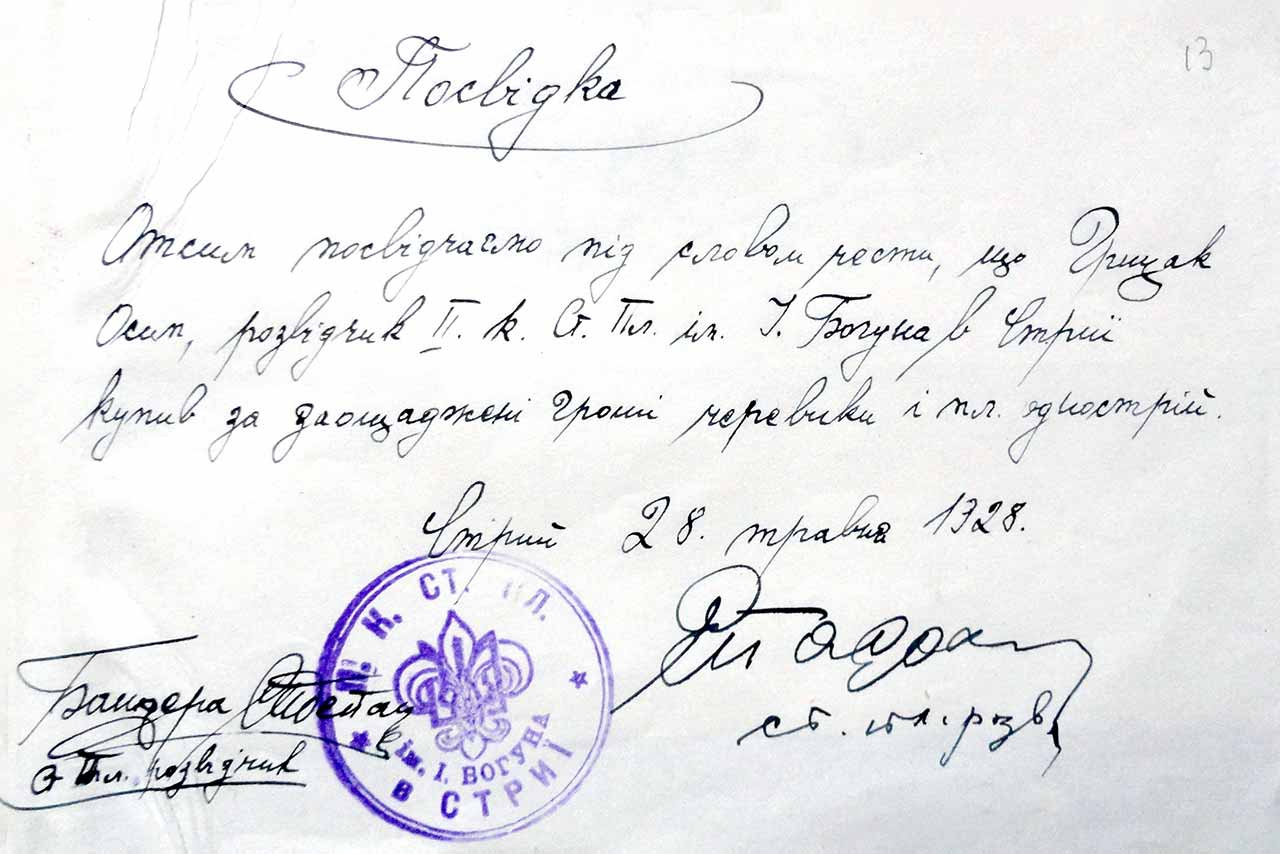 13
Посвідка
Отсим посвідчаємо під словом чести, що Грицак
Осип, розвідчик II. к. Ст. Пл. ім. І. Богуна в Стрию
купив за заощаджені гроші черевики і пл. однострій.
Стрий 28. травня 1928.
К. СТ. ПЛ.
ім. І. БОГУНА
В СТРИЇ
Бандера Степан
пл. розвідчик
ст. пл. розв.